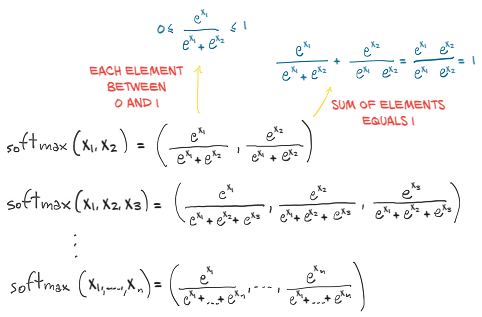 0 ≤ e^x₁ / (e^x₁ + e^x₂) ≤ 1
e^x₁ / (e^x₁ + e^x₂) + e^x₂ / (e^x₁ e^x₂) = e^x₁ e^x₂ / (e^x₁ e^x₂) = 1
EACH ELEMENT
BETWEEN
0 AND 1
SUM OF ELEMENTS
EQUALS 1
softmax (x₁, x₂) = (e^x₁ / (e^x₁ + e^x₂), e^x₂ / (e^x₁ + e^x₂))
softmax (x₁, x₂, x₃) = (e^x₁ / (e^x₁ + e^x₂ + e^x₃), e^x₂ / (e^x₁ + e^x₂ + e^x₃), e^x₃ / (e^x₁ + e^x₂ + e^x₃))
⋮
softmax (x₁, ..., xₙ) = (e^x₁ / (e^x₁ + ... + e^xₙ), ..., e^xₙ / (e^x₁ + ... + e^xₙ))